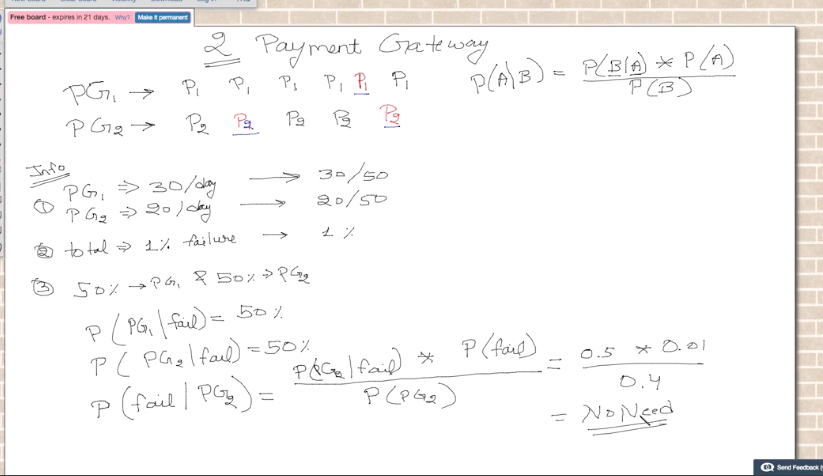 Free board - expires in 21 days. Why? Make it permanent
2 Payment Gateway
PG1 → P1 P1 P1 P1 P1 P1
PG2 → P2 P2 P2 P2 P2
P(A|B) = P(B|A) * P(A)
P(B)
Info
① PG1 ⇒ 30/day → 30/50
PG2 ⇒ 20/day → 20/50
② total ⇒ 1% failure → 1%
③ 50% → PG1 & 50% → PG2
P(PG1|fail) = 50%
P(PG2|fail) = 50%
P(fail|PG2) = P(PG2|fail) * P(fail) = 0.5 * 0.01
P(PG2) 0.4
= No Need
Send Feedback